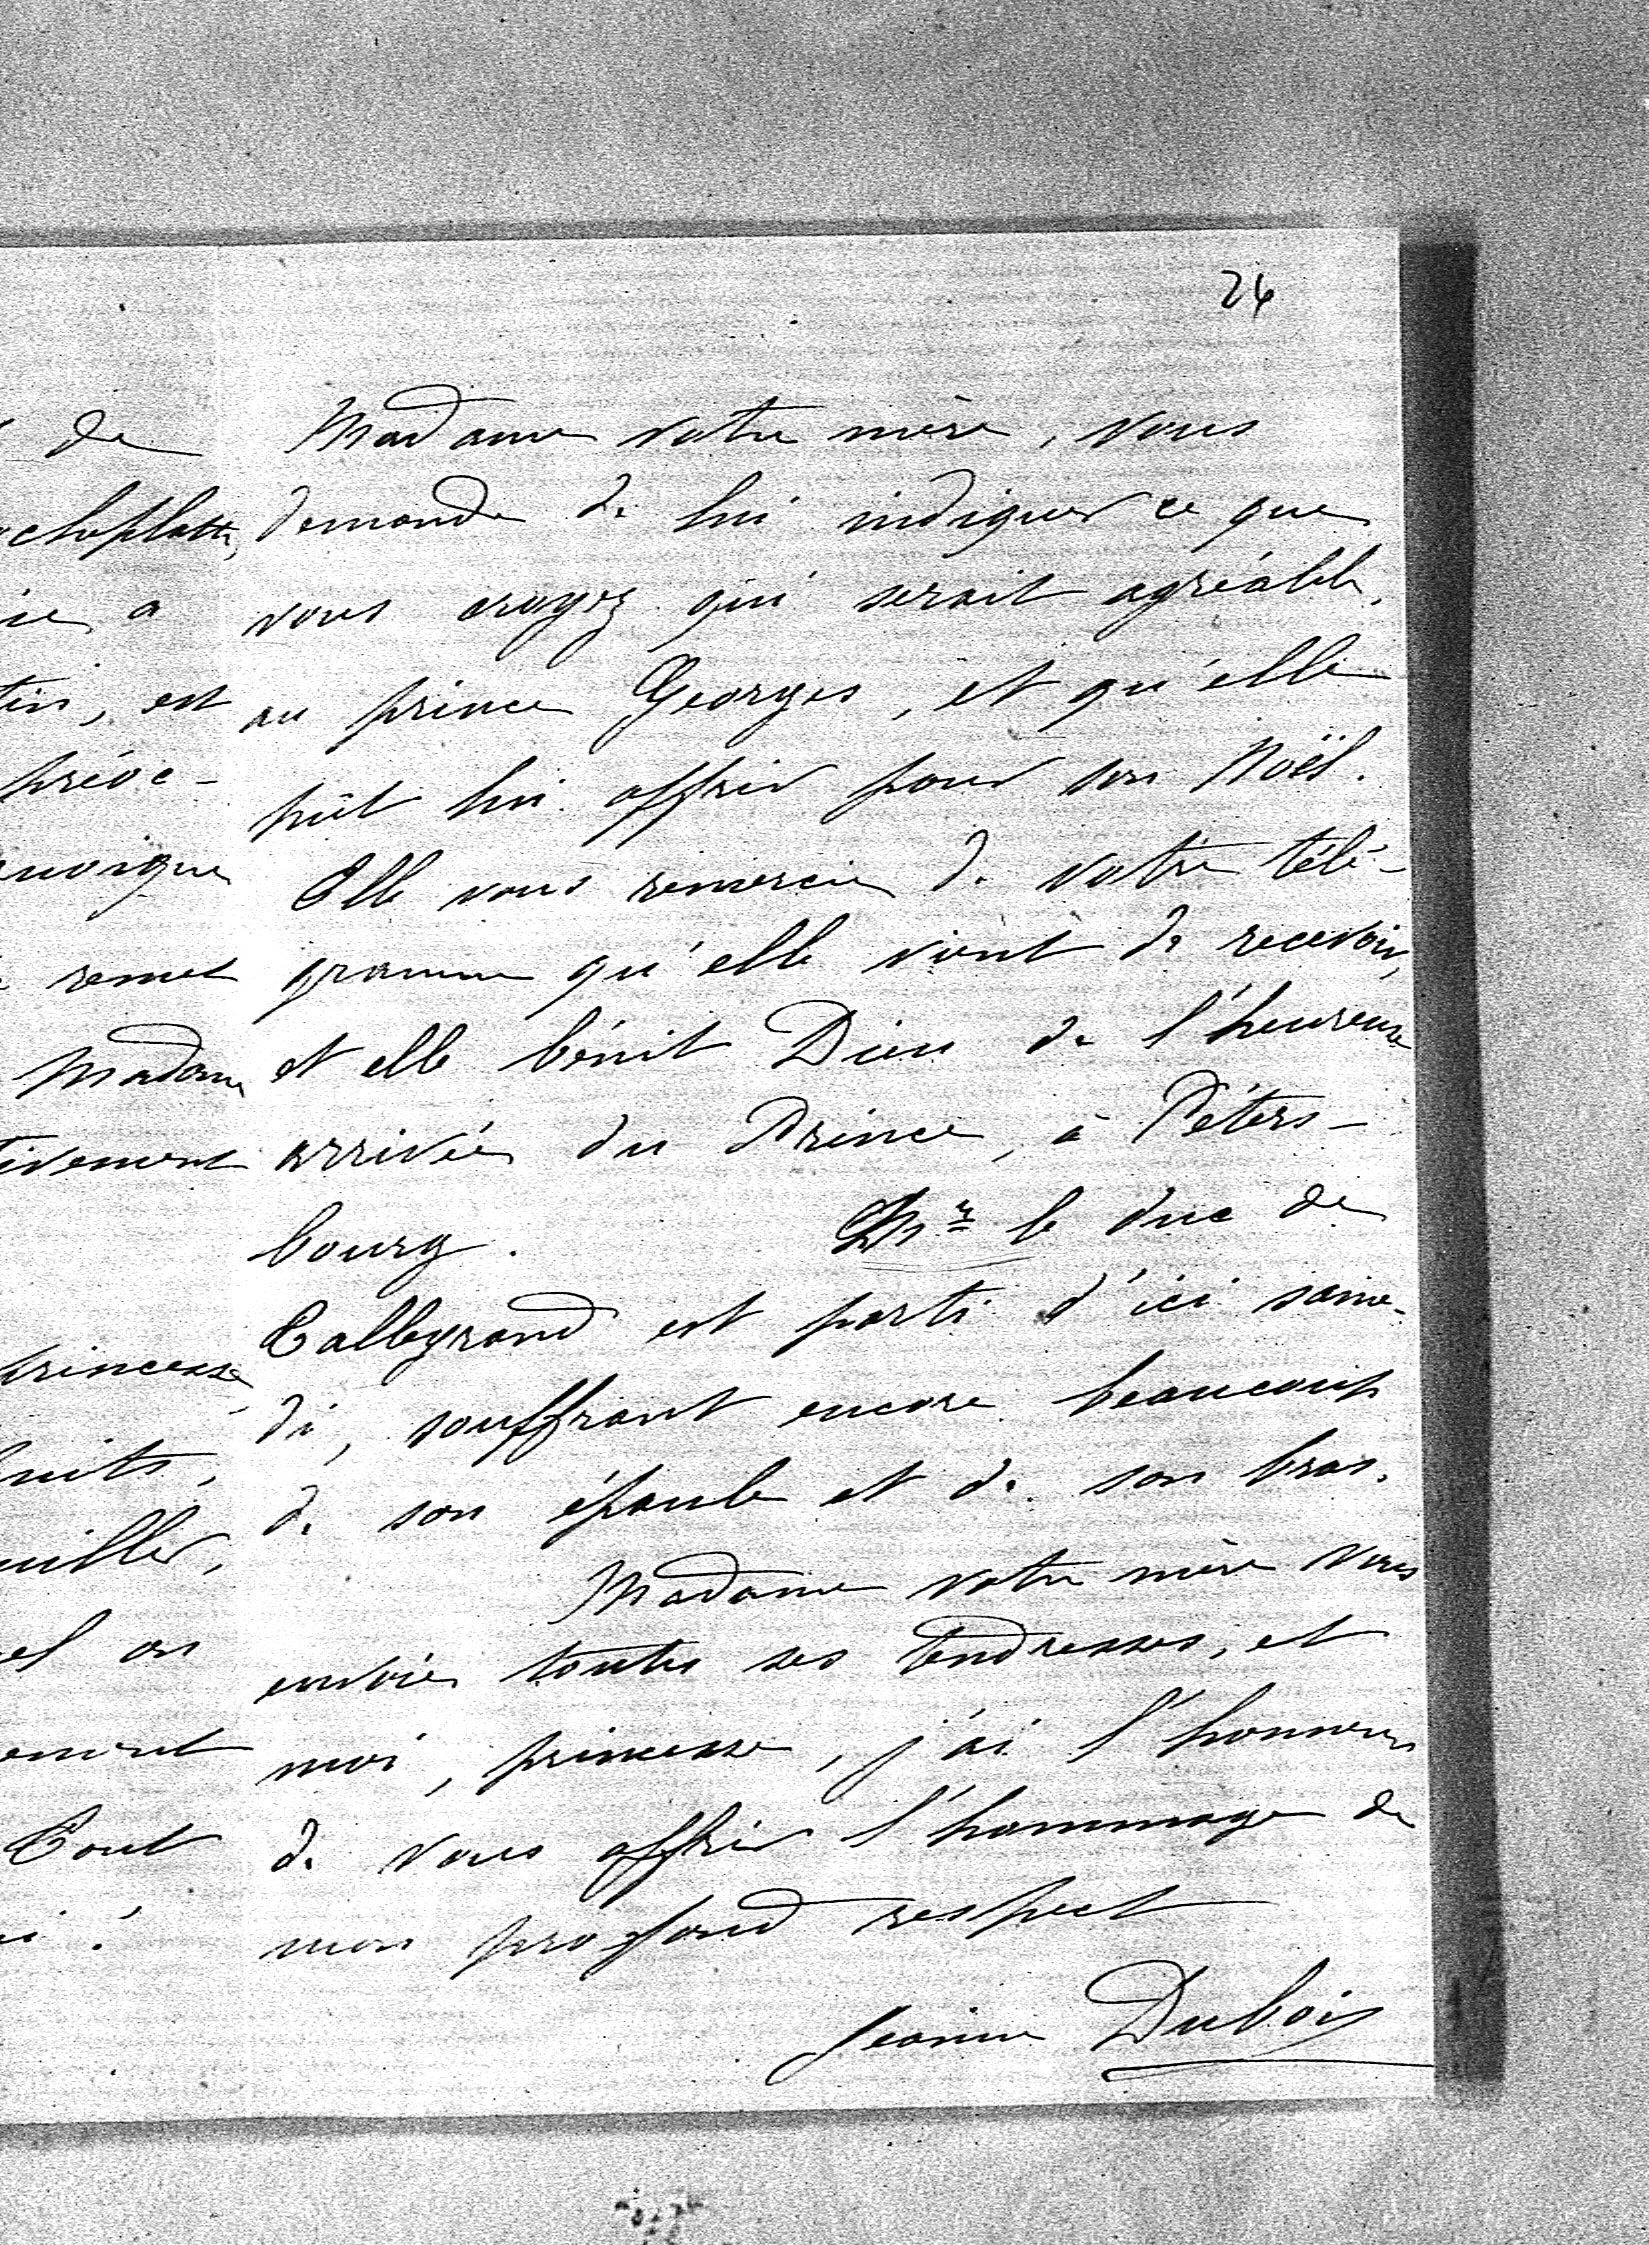 24
de
Madame votre mère, vous
demande de lui indiquer ce que
vous croyez qui serait agréable,
au prince Georges, et qu'elle
pût lui offrir pour son Noël.
Elle vous remercie de votre télé-
gramme qu'elle vient de recevoir,
et elle bénit Dieu de l'heureuse
arrivée du Prince, à Péters-
bourg. Mr le duc de
Talleyrand est parti d'ici same-
di, souffrant encore beaucoup
de son épaule et de son bras.
Madame votre mère vous
envoie toutes ses tendresses, et
moi, princesse, j'ai l'honneur
de vous offrir l'hommage de
mon profond respect
Jeanne Dubois
a
est
prévé-
remet
Madame
princesse
on
Tout